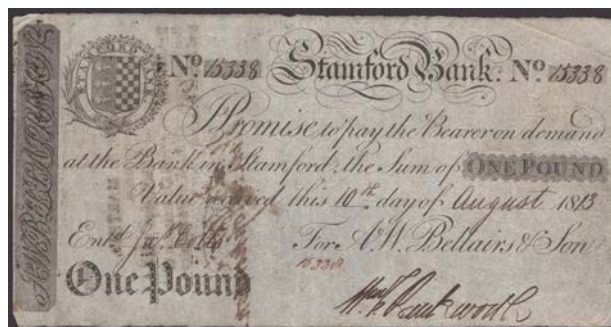 STAMFORD BANK
No 15338 Stamford Bank. No 15338
Promise to pay the Bearer on demand
at the Bank in Stamford, the Sum of ONE POUND
Value received this 10th day of August 1813
Entd For A.W. Bellairs & Son
15338
One Pound